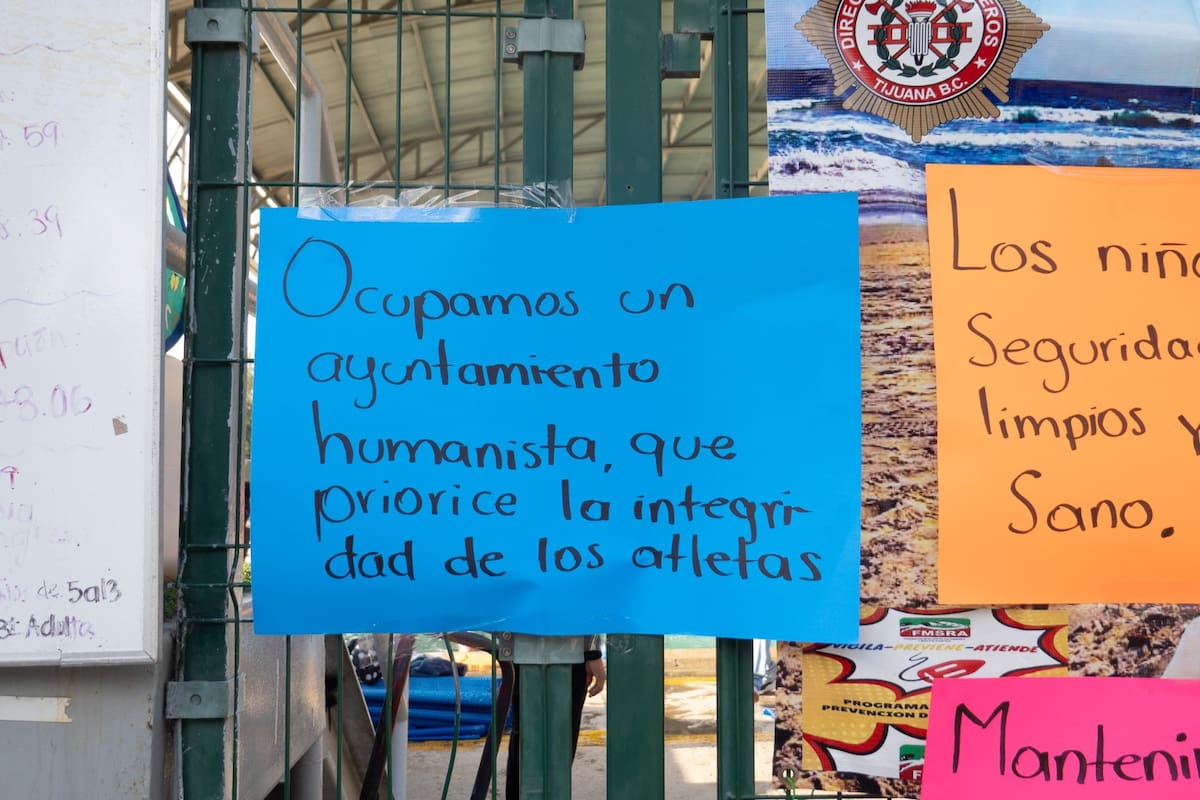 : 59
. 39
8.06
de 5a13
Adultos
Ocupamos un
ayuntamiento
humanista, que
priorice la integri-
dad de los atletas
TIJUANA B.C.
Los niño
Segurida
limpios y
Sano.
FMSRA
VIGILA-PREVIENE-ATIENDE
PROGRAMA
PREVENCION D
Manteni